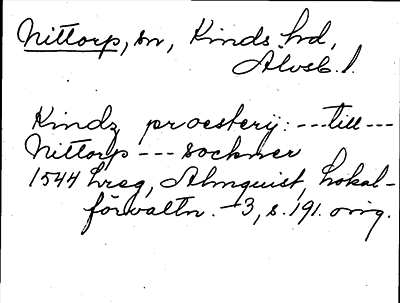 Nittorp, sn, Kinds hd,
Älvsb. l.
Kindz proesterij: --- till ---
Nittorp --- sockner
1544 hreg, Almquist, Lokal-
förvaltn. -3, s. 191. orig.